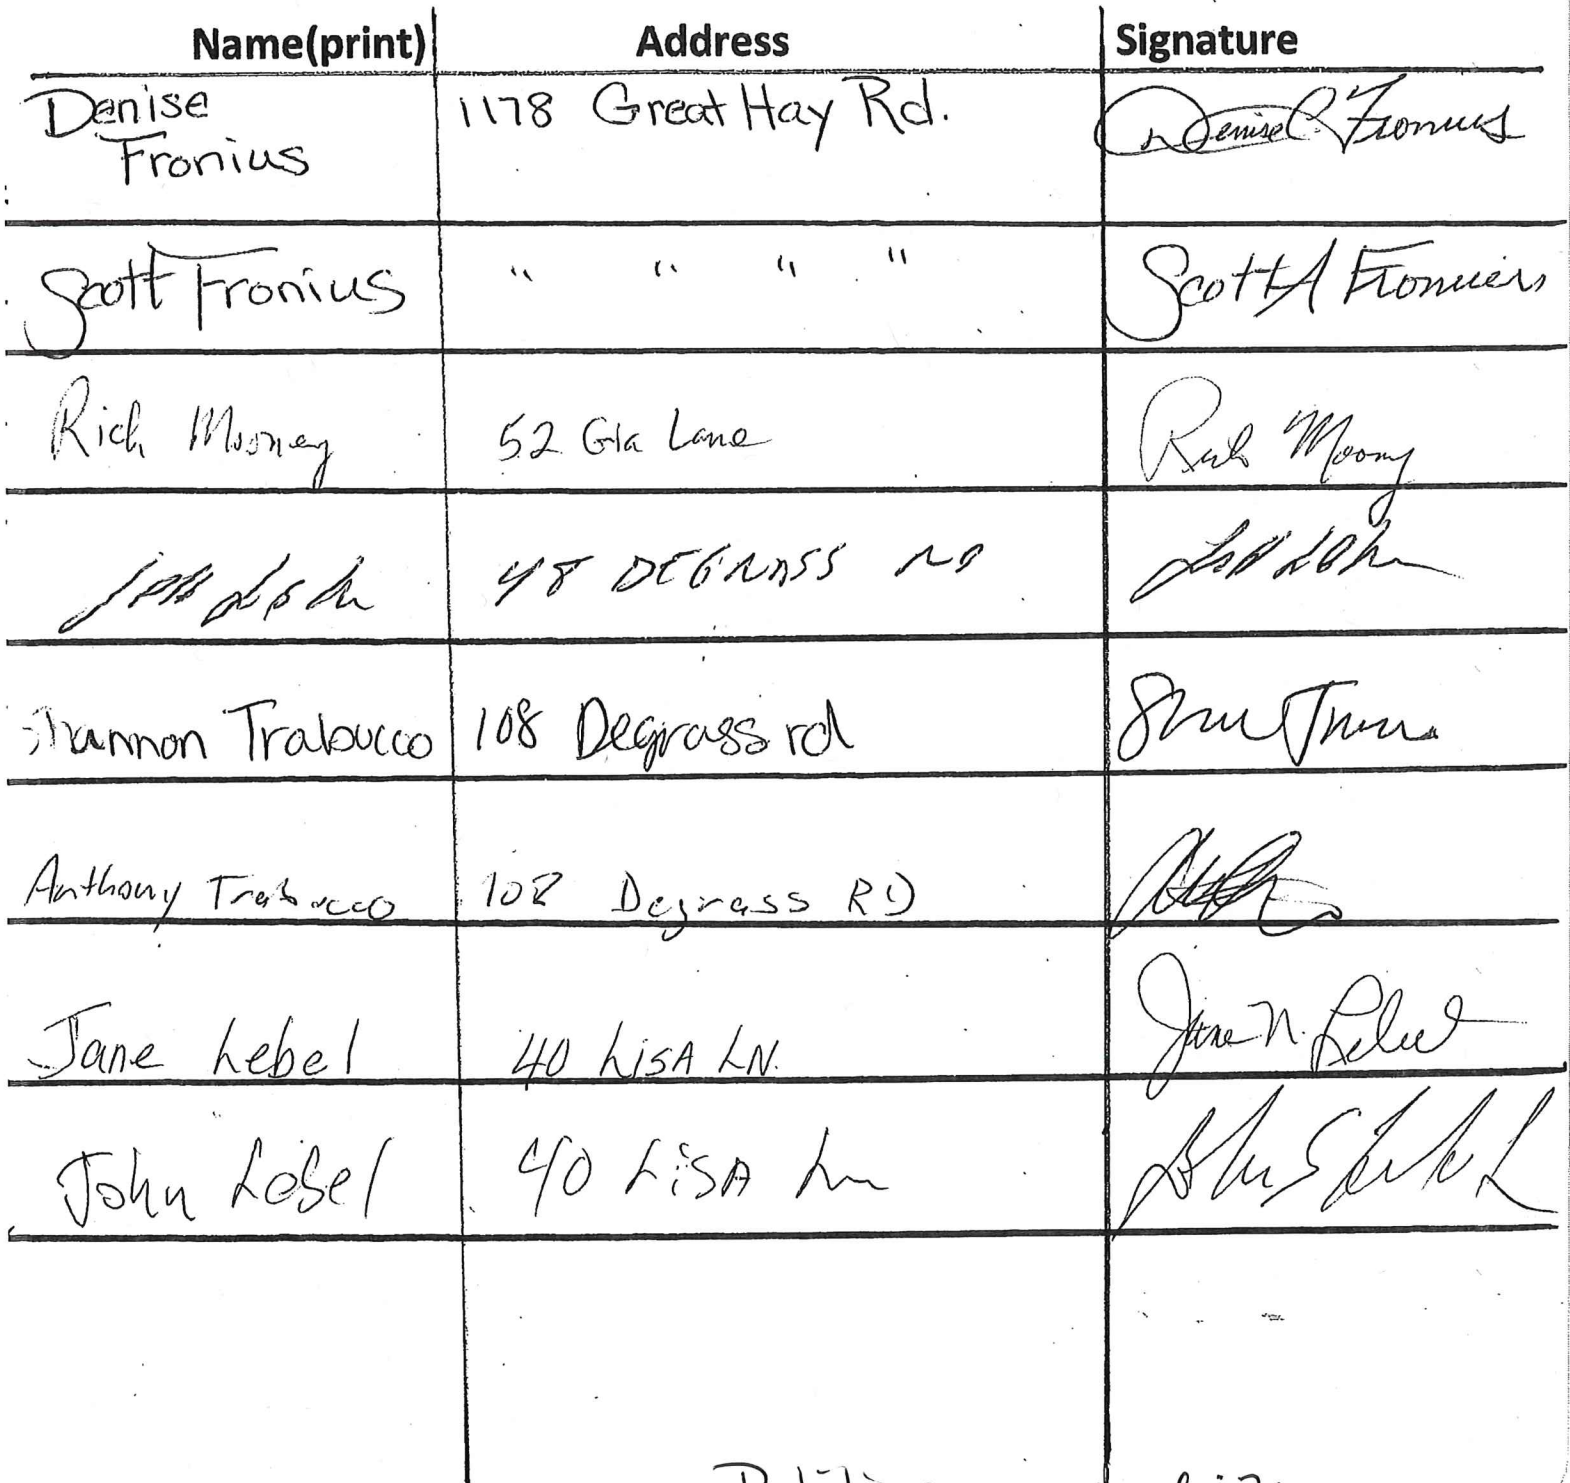 Name(print) Address Signature
Denise 1178 Great Hay Rd. Denise C. Fronius
Fronius
Scott Fronius " " " " Scott A Fronius
Rich Mooney 52 Gia Lane Rich Mooney
48 DEGRASS RD
Shannon Trabucco 108 Degrass rd
Anthony Trabucco 108 Degrass RD
Jane Lebel 40 LiSA LN. Jane N. Lebel
John Lebel 40 LiSA Ln